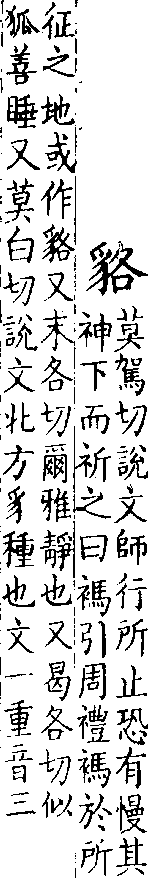 貉
莫駕切說文師行所止恐有慢其
神下而祈之曰禡引周禮禡於所
征之地或作貉又末各切爾雅靜也又曷各切似
狐善睡又莫白切說文北方豸種也文一重音三